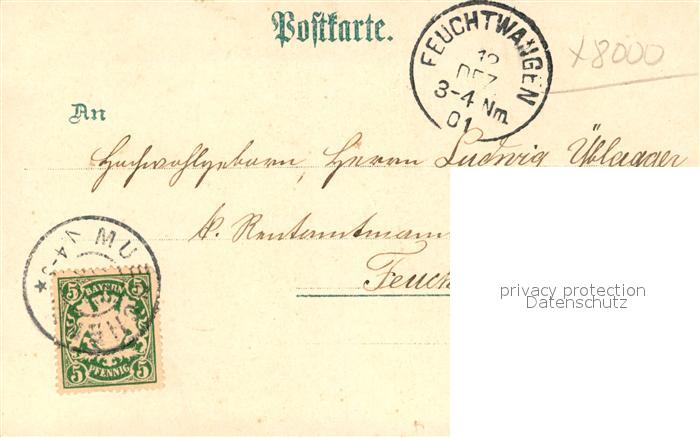 Postkarte.
FEUCHTWANGEN
12
DEZ.
3-4 Nm.
01
x8000
An
Hochwohlgeborn, Herrn Ludwig
k. Rentamtmann
Feuch
MU
V 4-5
5 BAYERN 5
5 PFENNIG 5
privacy protection
Datenschutz